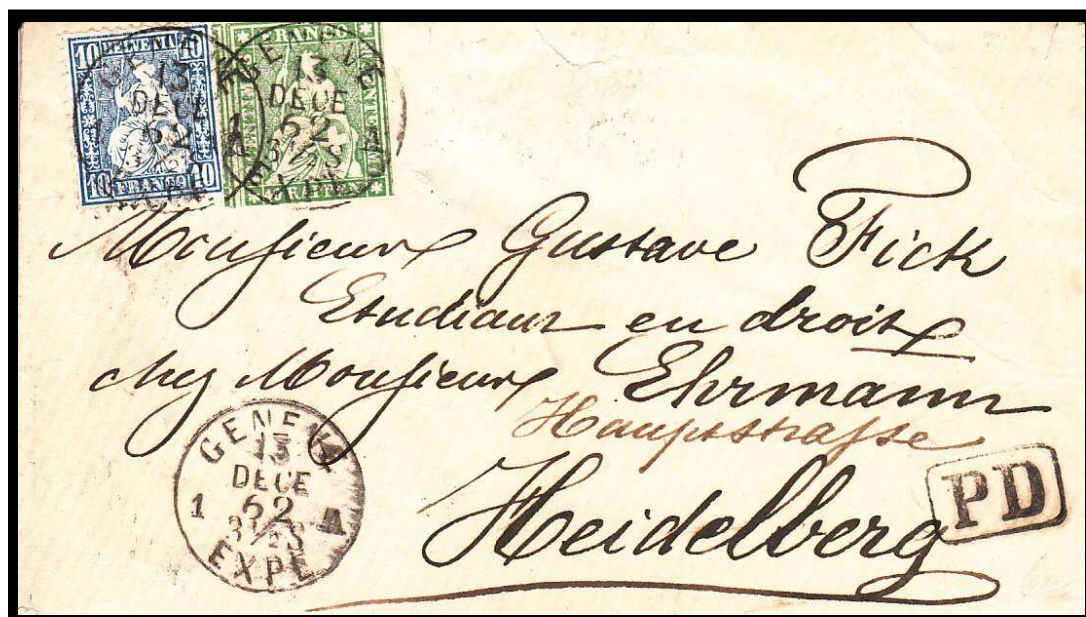 10 HELVETIA 10
10 FRANCO 10
FRANCO
RAPPEN
GENEVE
13
DECE
62
3½S
1 A
EXPE
Monsieur Gustave Fick
Etudiant en droit
chez Monsieur Ehrmann
Hauptstrasse
Heidelberg
GENEVE
13
DECE
1 62 A
3½S
EXPE
PD